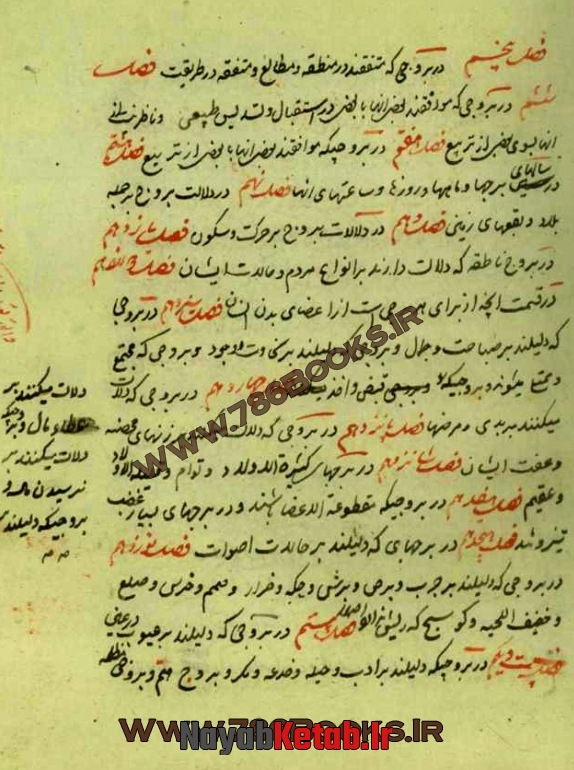 فصل پنجم در بروجی که متفقند در منطقه و مطالع و متفقه در طریقت فصل
ششم در بروجی که موافقند بعض انها با بعض در استقبال و تسدیس طبیعی و ناظر
انها بسوی بعض از تربیع فصل هفتم در بروجیکه موافقند بعض انها با بعض از تربیع فصل هشتم
در سالهای برجها و ماهها و روزها و ساعتهای انها فصل نهم در دلالت بروج بر همه
بلاد و بقعهای زمینی فصل دهم در دلالات بروج بر حرکت و سکون فصل یازدهم
در بروج ناطقه که دلالت دارند بر انواع مردم و حالات ایشان فصل دوازدهم
در قسمت انچه از برای هر برجی است از اعضای بدن انسان فصل سیزدهم در بروجی
که دلیلند بر صباحت و جمال و بروجی که دلیلند بر سخاوت وجود و بروجی که مجتمع
و ممتع میشوند و بروجیکه قبض و اخذ فصل چهاردهم در بروجی که دلالت
میکنند بر بدی و مرضها فصل پانزدهم در بروجی که دلالت زنهای محصنه
و عفت ایشان فصل شانزدهم در برجهای کثیرة الاولاد و توام و قلیله الاولاد
و عقیم فصل هفدهم در بروجیکه مقطوعة الاعضا شند و در برجهای بسیار غضب
تیز و تند فصل هجدهم در برجهای که دلیلند بر حالات اصوات فصل نوزدهم
در بروجی که دلیلند بر جرب و برص و برش و حکه و خراز و صمم و خرس و صلع
و خفیف اللحیه و کوسج که ریش فصل بیستم در بروجی که دلیلند بر عیوب در عینی
فصل بیست و یکم در بروجیکه دلیلند بر ادب و حیله و خدعه و مکر و بروج و بروجی مظلمه
دلالت میکنند بر
اعطاء مال و بروجیکه
دلالت میکنند بر
نرسیدن مال و
بروجیکه دلیلند بر
WWW.786BOOKS.IR
WWW.786BOOKS.IR
NayabKetab.ir